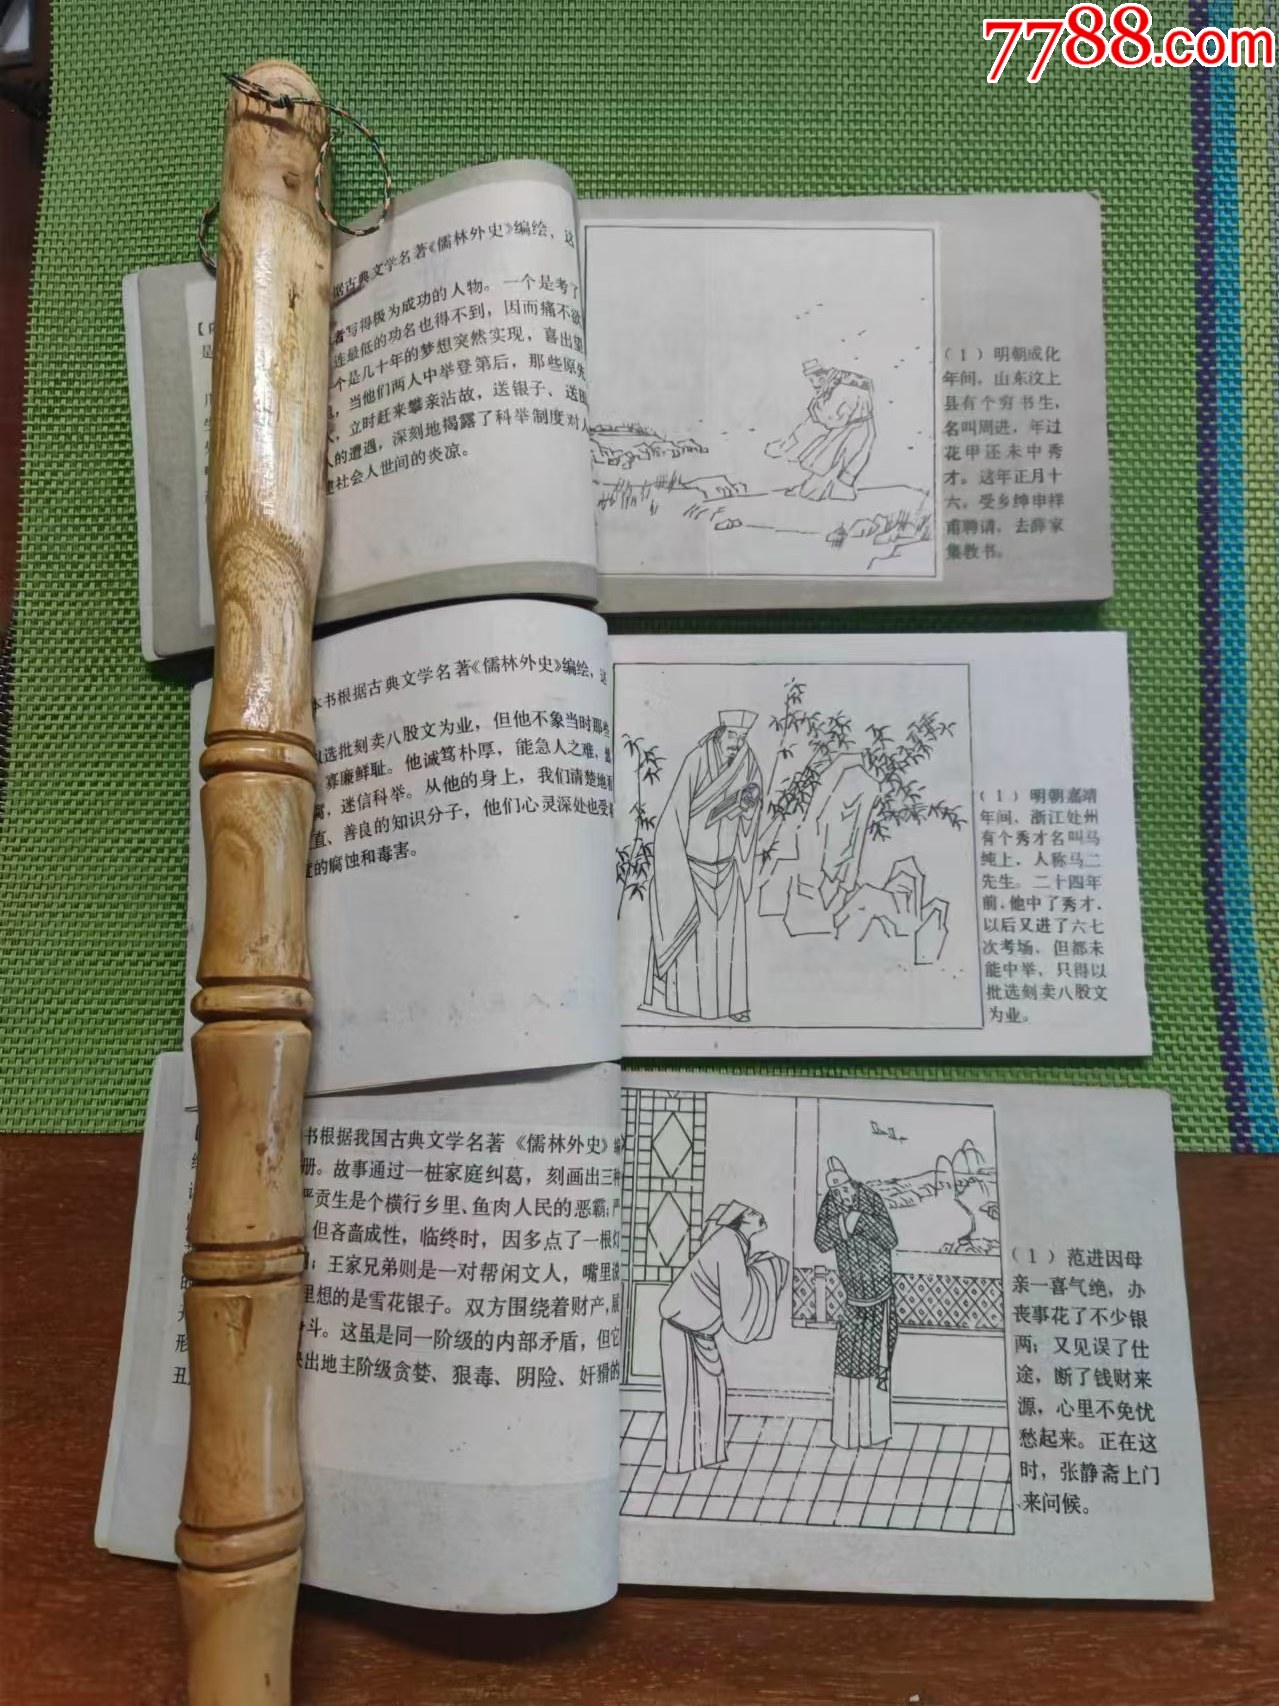 7788.com
据古典文学名著《儒林外史》编绘，这
者写得极为成功的人物。一个是考了
连最低的功名也得不到，因而痛不欲
个是几十年的梦想突然实现，喜出望
，当他们两人中举登第后，那些原先
，立时赶来攀亲沾故，送银子、送田
人的遭遇，深刻地揭露了科举制度对人
建社会人世间的炎凉。
（1）明朝成化
年间，山东汶上
县有个穷书生，
名叫周进，年过
花甲还未中秀
才。这年正月十
六，受乡绅申祥
甫聘请，去薛家
集教书。
本书根据古典文学名著《儒林外史》编绘，这
以选批刻卖八股文为业，但他不象当时那些
寡廉鲜耻。他诚笃朴厚，能急人之难，
腐，迷信科举。从他的身上，我们清楚地看
直、善良的知识分子，他们心灵深处也受
度的腐蚀和毒害。
（1）明朝嘉靖
年间，浙江处州
有个秀才名叫马
纯上，人称马二
先生。二十四年
前，他中了秀才，
以后又进了六七
次考场，但都未
能中举，只得以
批选刻卖八股文
为业。
书根据我国古典文学名著《儒林外史》编
册。故事通过一桩家庭纠葛，刻画出三种
严贡生是个横行乡里、鱼肉人民的恶霸；严
但吝啬成性，临终时，因多点了一根灯
；王家兄弟则是一对帮闲文人，嘴里说
里想的是雪花银子。双方围绕着财产，展
斗。这虽是同一阶级的内部矛盾，但它
出地主阶级贪婪、狠毒、阴险、奸猾的
（1）范进因母
亲一喜气绝，办
丧事花了不少银
两；又见误了仕
途，断了钱财来
源，心里不免忧
愁起来。正在这
时，张静斋上门
来问候。